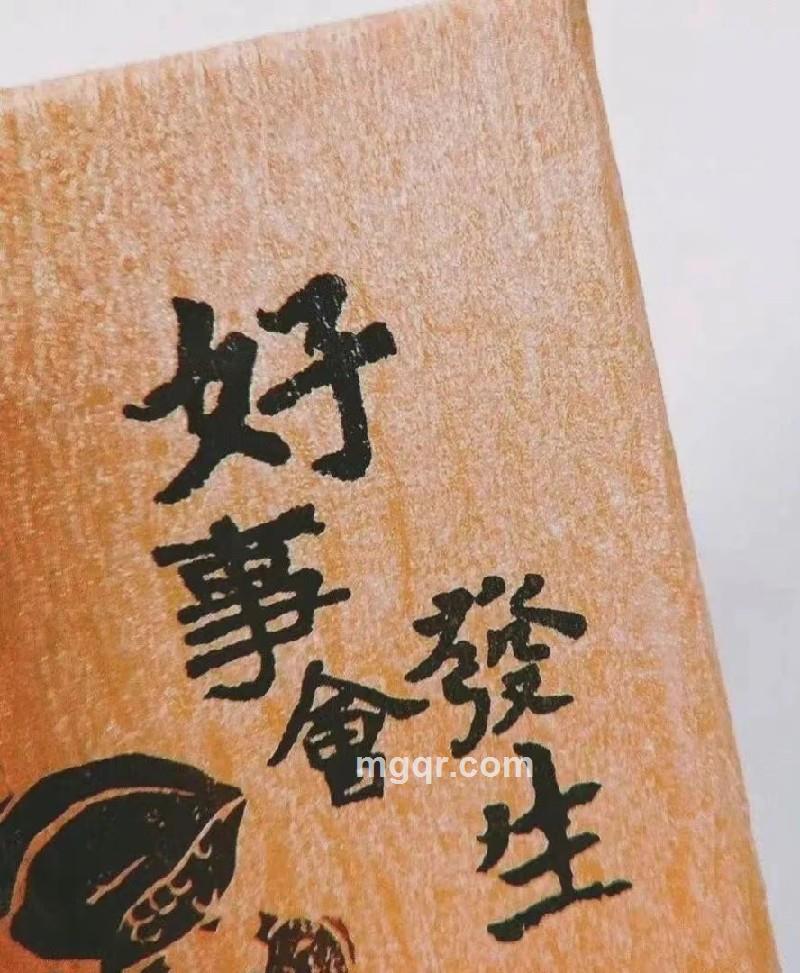 好事會
發生
mgqr.com